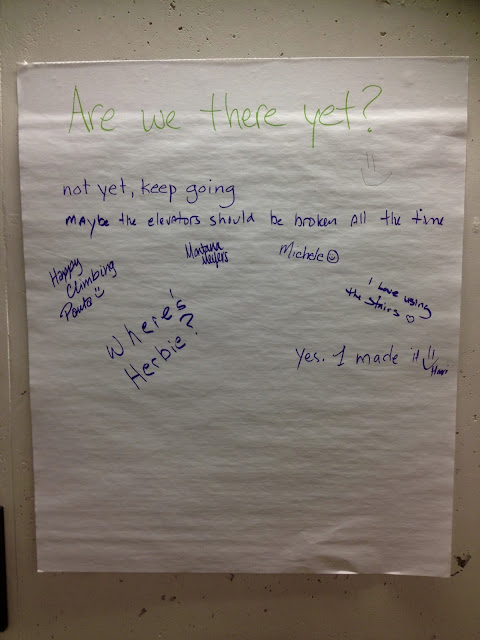 Are we there yet?
not yet, keep going
Maybe the elevators should be broken all the time
Happy
Climbing
Montana
Meyers
Michele
I Love using
the stairs
Where's
Herbie?
Yes. I made it